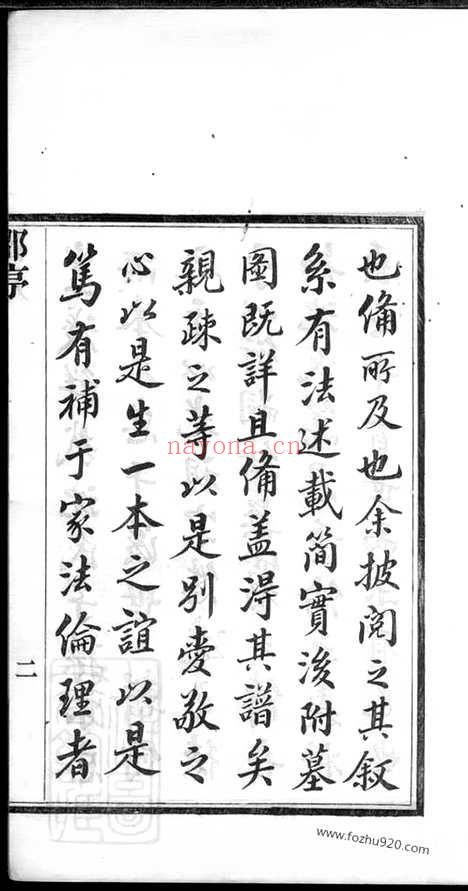 也備所及也余披閱之其叙
系有法述載簡實後附墓
圖既詳且備蓋得其譜矣
親疎之等以是別愛敬之
心以是生一本之誼以是
篤有補于家法倫理者
二
nayona.cn
www.fozhu920.com